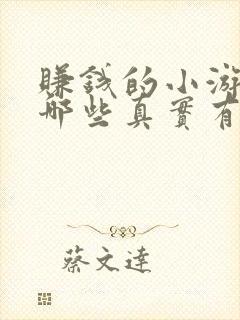 賺錢的小游
哪些真實有
蔡文達